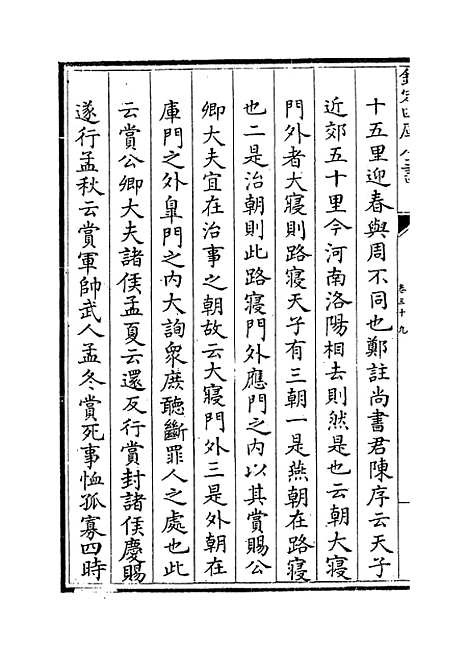 欽定四庫全書
卷五十九
十五里迎春與周不同也鄭註尚書君陳序云天子
近郊五十里今河南洛陽相去則然是也云朝大寝
門外者大寝則路寝天子有三朝一是燕朝在路寝
也二是治朝則此路寝門外應門之內以其賞賜公
卿大夫宜在治事之朝故云大寝門外三是外朝在
庫門之外臯門之內大詢衆庶聽斷罪人之處也此
云賞公卿大夫諸侯孟夏云還反行賞封諸侯慶賜
遂行孟秋云賞軍帥武人孟冬賞死事恤孤寡四時